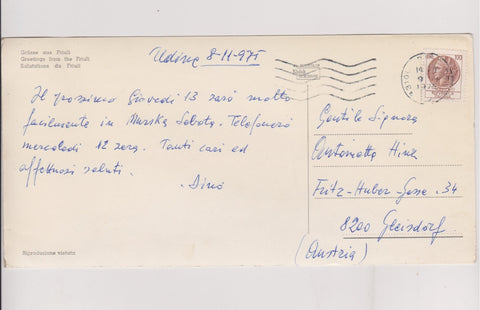 Grüsse aus Friuli
Greetings from the Friuli
Salutations du Friuli
Udine 8-11-975
Il prossimo Giovedi 13 sarò molto
facilmente in Murska Sobota. Telefonerò
mercoledì 12 sera. Tanti cari ed
affettuosi saluti.
Dino
Riproduzione vietata
100
Gentile Signora
Antonietta Hinz
Fritz-Huber Gasse. 34
8200 Gleisdorf
(Austria)